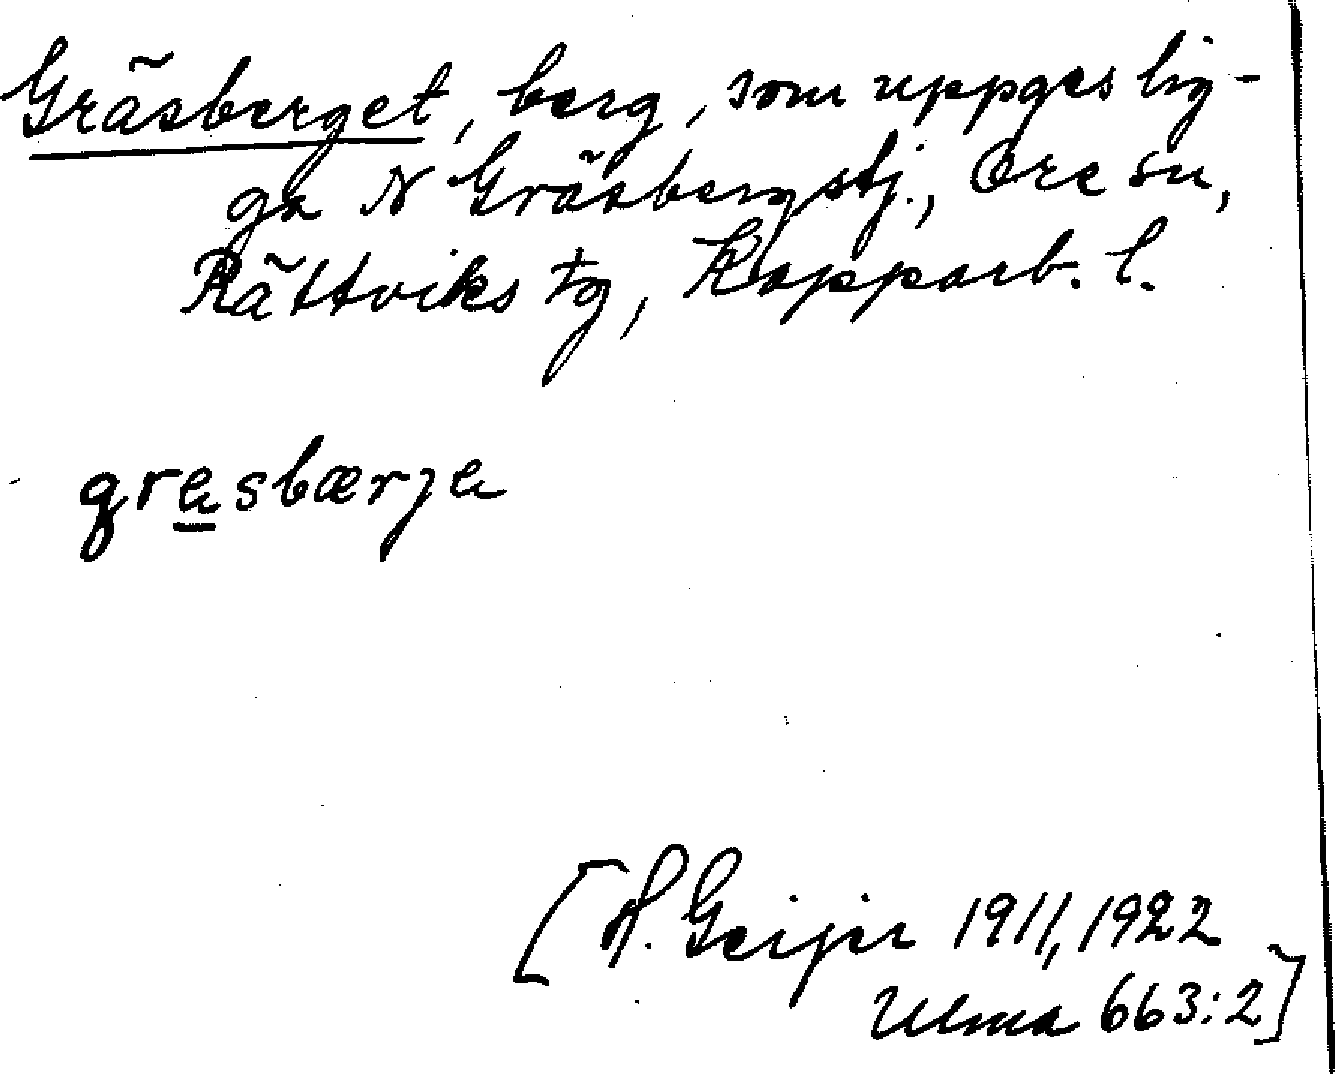 Gräsberget, berg, som uppges lig-
ga N Gräsbergstj., Ore sn,
Rättviks tg, Kopparb. l.
gräsbærjä
[H. Geijer 1911, 1922
Ulma 663:2]